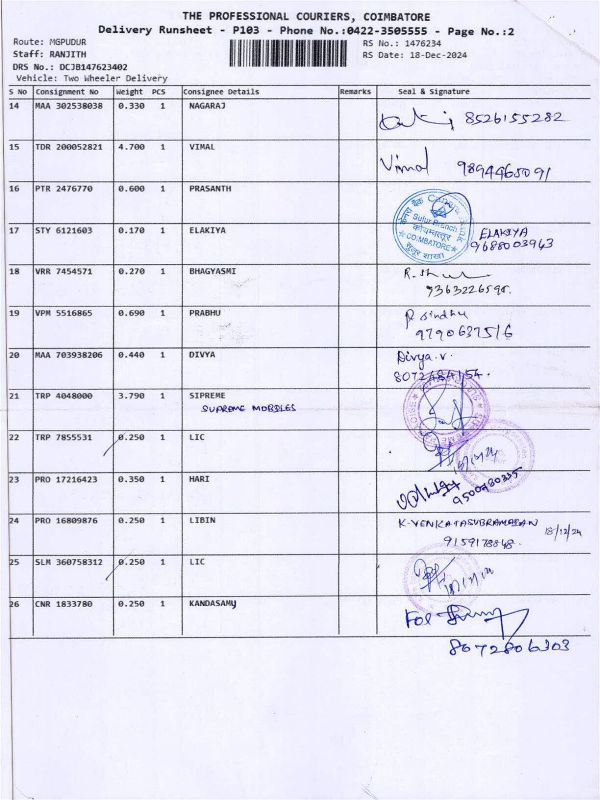 THE PROFESSIONAL COURIERS, COIMBATORE
Delivery Runsheet - P103 - Phone No.:0422-3505555 - Page No.:2
Route: MGPUDUR
RS No.: 1476234
Staff: RANJITH
RS Date: 18-Dec-2024
DRS No.: DCJB147623402
Vehicle: Two Wheeler Delivery
S No Consignment No Weight PCS Consignee Details Remarks Seal & Signature
14 MAA 302538038 0.330 1 NAGARAJ
8526155282
15 TDR 200052821 4.700 1 VIMAL
Vimal 9894465091
16 PTR 2476770 0.600 1 PRASANTH
Sulur Branch
COIMBATORE
17 STY 6121603 0.170 1 ELAKIYA
ELAKIYA
9688003943
18 VRR 7454571 0.270 1 BHAGYASMI
9363226595.
19 VPM 5516865 0.690 1 PRABHU
P. Sindhu
9790637516
20 MAA 703938206 0.440 1 DIVYA
Divya.v.
8072484154.
21 TRP 4048000 3.790 1 SIPREME
SUPREME MOBILES
22 TRP 7855531 0.250 1 LIC
23 PRO 17216423 0.350 1 HARI
9500980335
24 PRO 16809876 0.250 1 LIBIN
K-VENKATASUBRAMANIAN
18/12/24
9159178848.
25 SLM 360758312 0.250 1 LIC
26 CNR 1833780 0.250 1 KANDASAMY
For
8072806303